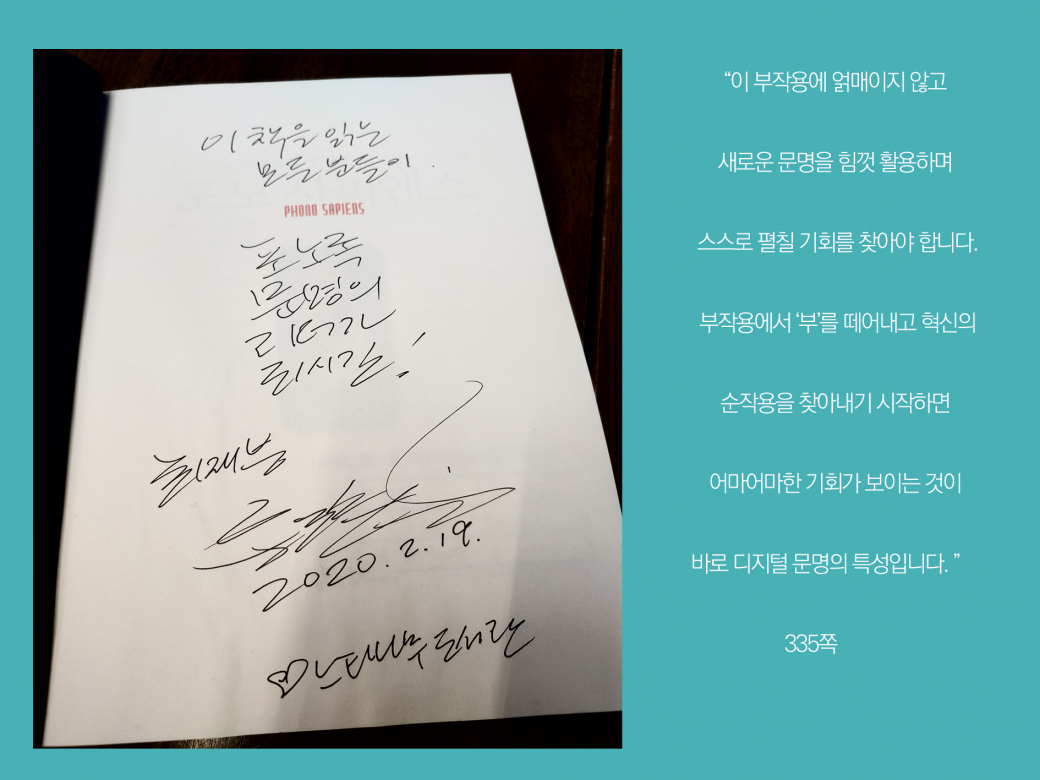 이 책을 읽는
모든 분들이.
PHONO SAPIENS
포노족
문명의
리더가
되시길!
최재붕
2020. 2. 19.
“이 부작용에 얽매이지 않고
새로운 문명을 힘껏 활용하며
스스로 펼칠 기회를 찾아야 합니다.
부작용에서 ‘부’를 떼어내고 혁신의
순작용을 찾아내기 시작하면
어마어마한 기회가 보이는 것이
바로 디지털 문명의 특성입니다. ”
335쪽